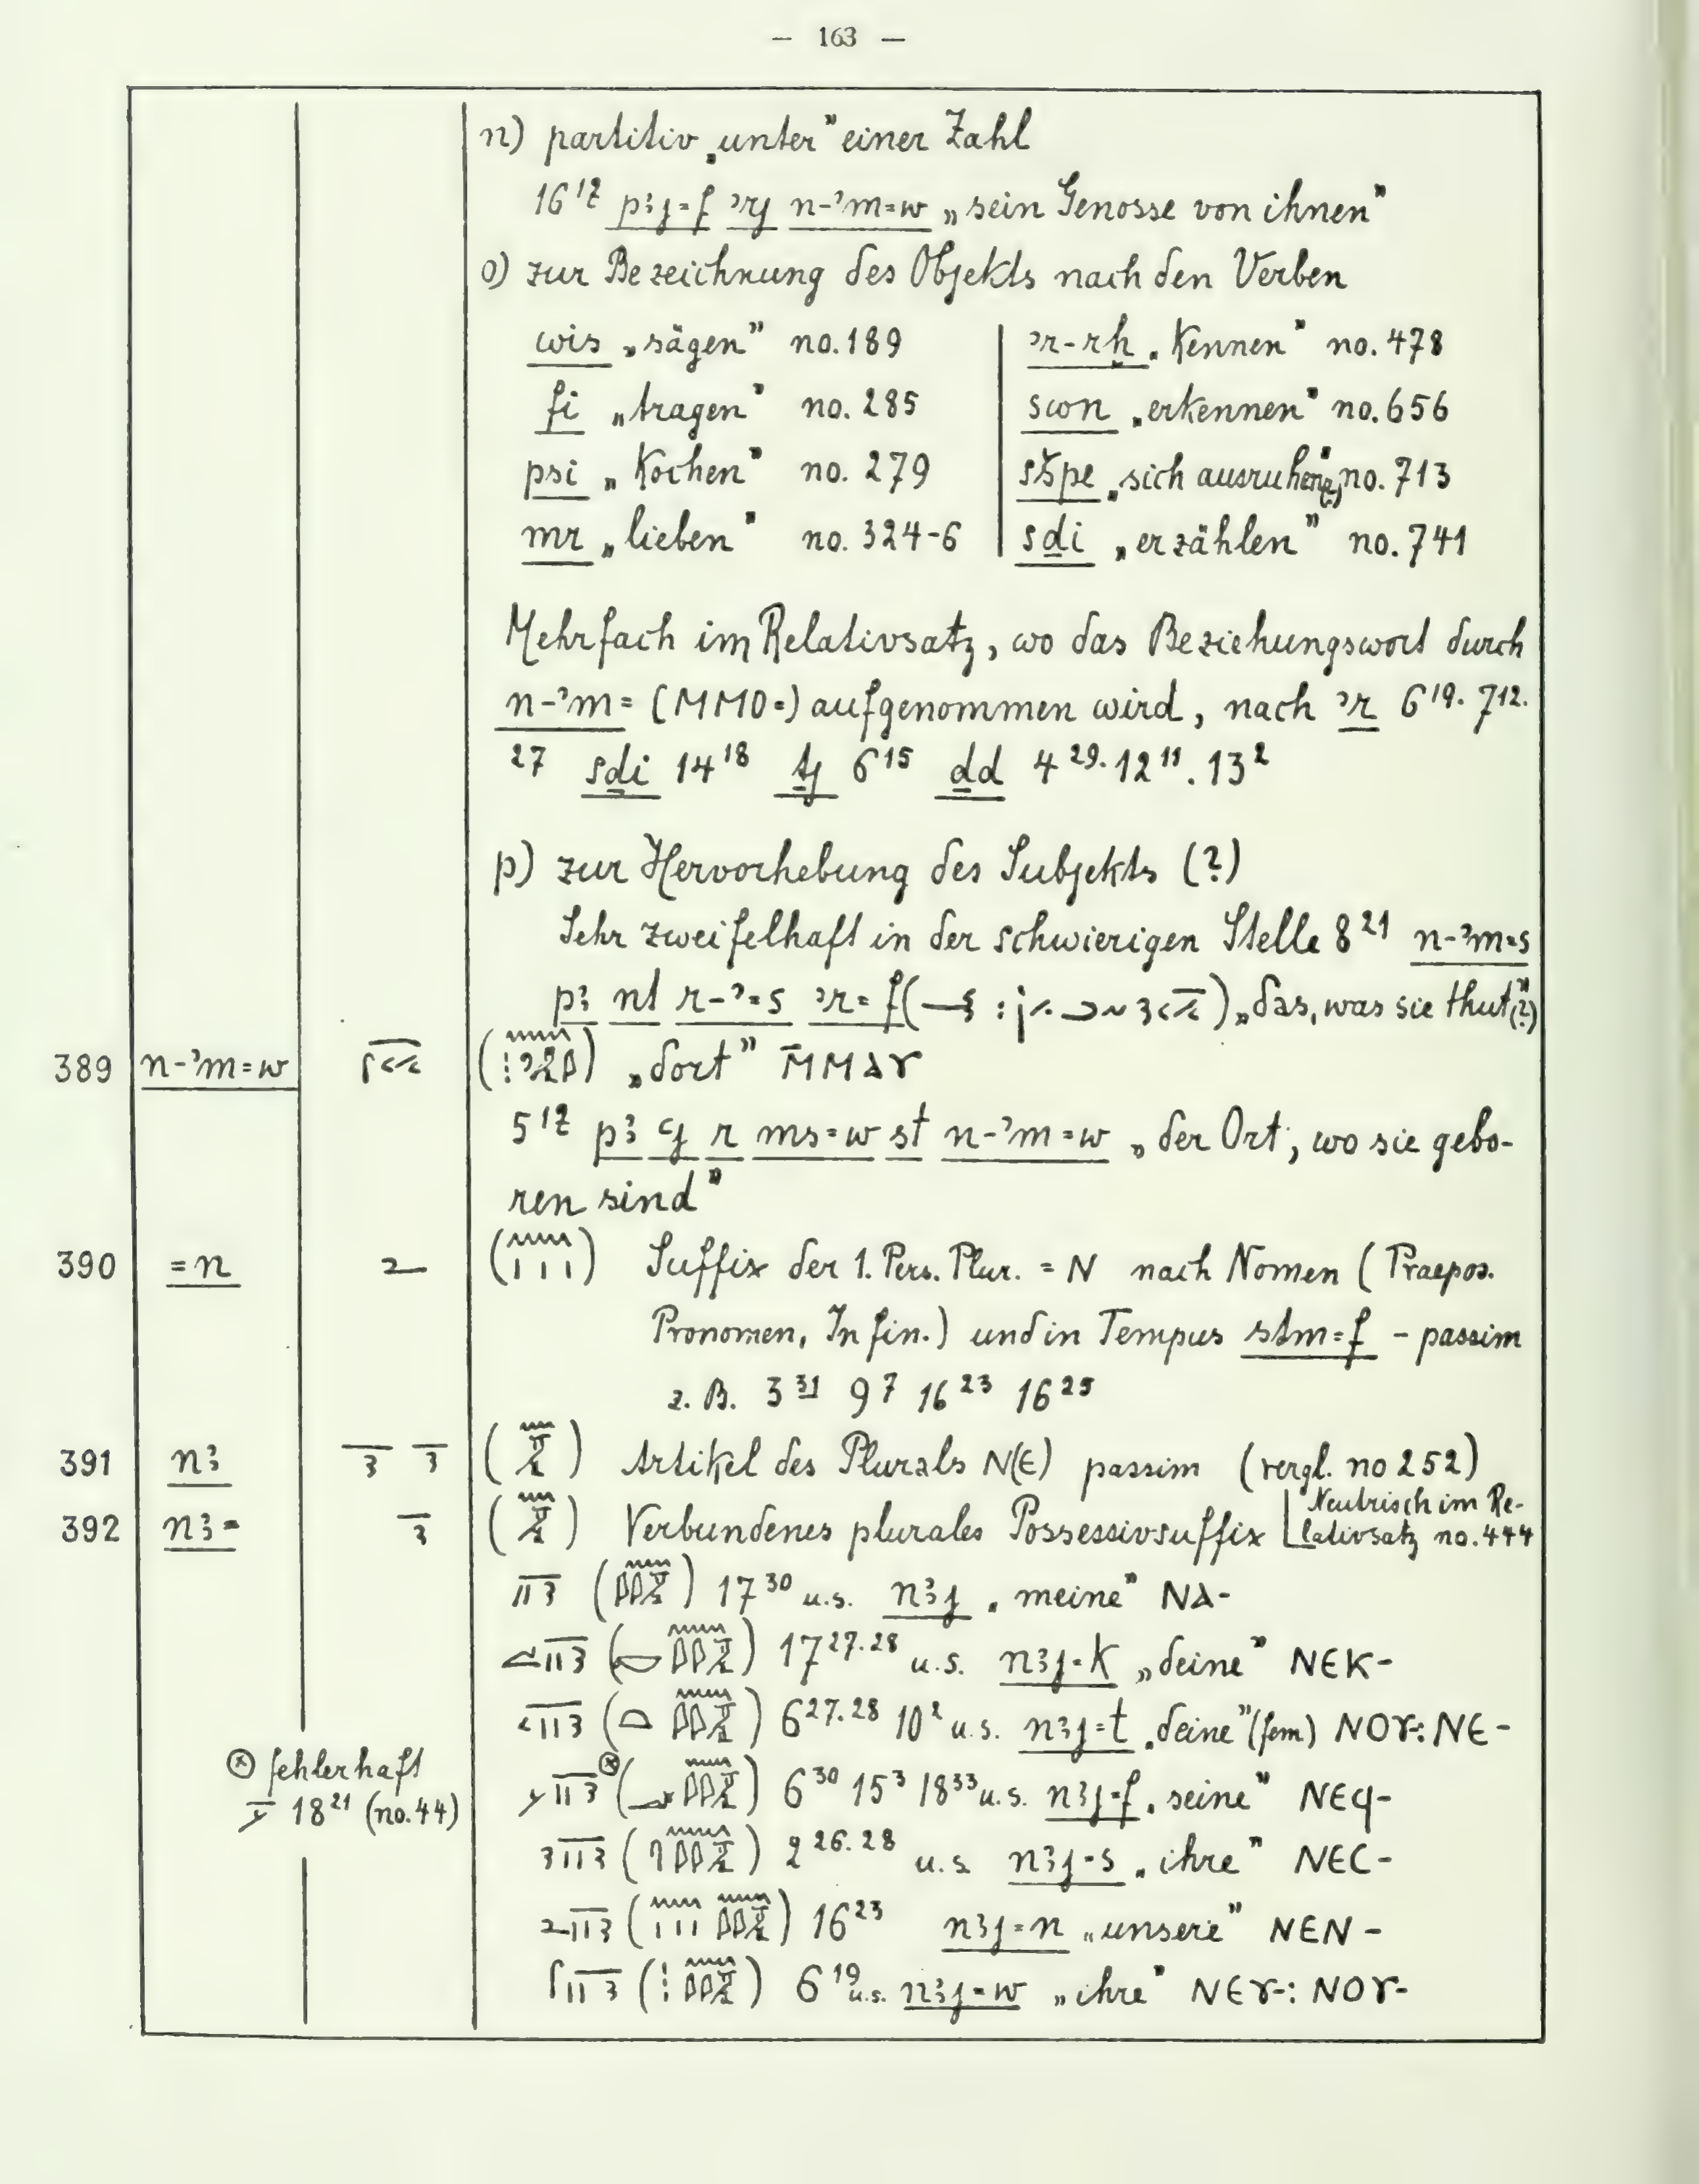 — 163 —
n) partitiv „unter” einer Zahl
16¹⁷ pꜣj=f ꜣrj n-ꜣm=w „sein Genosse von ihnen”
o) zur Bezeichnung des Objekts nach den Verben
wis „sägen” no. 189 | ꜣr-rḫ „Kennen” no. 478
fi „tragen” no. 285 | swn „erkennen” no. 656
psi „Kochen” no. 279 | sšpe „sich ausruhen” no. 713
mr „lieben” no. 324-6 | sḏi „erzählen” no. 741
Mehrfach im Relativsatz, wo das Beziehungswort durch
n-ꜣm= (ⲘⲘⲞ=) aufgenommen wird, nach ꜣr 6¹⁹· 7¹²·
²⁷ sḏi 14¹⁸ ṯj 6¹⁵ ḏd 4²⁹· 12¹¹. 13²
p) zur Hervorhebung des Subjekts (?)
Sehr zweifelhaft in der schwierigen Stelle 8²¹ n-ꜣm=s
pꜣ nt r-ꜣ=s ꜣr=f „das, was sie thut” (?)
389 n-ꜣm=w „dort” ⲘⲘⲀⲨ
5¹⁷ pꜣ ꜥj r ms=w st n-ꜣm=w „der Ort, wo sie gebo-
ren sind”
390 =n Suffix der 1. Pers. Plur. = Ⲛ nach Nomen (Praepos.
Pronomen, Infin.) und in Tempus stm=f - passim
z. B. 3³¹ 9⁷ 16²³ 16²⁵
391 nꜣ Artikel des Plurals Ⲛ(Ⲉ) passim (vergl. no 252)
Neutrisch im Re-
lativsatz no. 444
392 nꜣ= Verbundenes plurales Possessivsuffix
17³⁰ u.s. nꜣj „meine” ⲚⲀ-
17²⁷·²⁸ u.s. nꜣj=k „deine” ⲚⲈⲔ-
6²⁷·²⁸ 10² u.s. nꜣj=t „deine” (fem) ⲚⲞⲨ-: ⲚⲈ-
ⓧ fehlerhaft
18²¹ (no. 44)
ⓧ 6³⁰ 15³ 18³³ u.s. nꜣj=f „seine” ⲚⲈϤ-
2²⁶·²⁸ u.s. nꜣj=s „ihre” ⲚⲈⲤ-
16²³ nꜣj=n „unsere” ⲚⲈⲚ-
6¹⁹ u.s. nꜣj=w „ihre” ⲚⲈⲨ-: ⲚⲞⲨ-